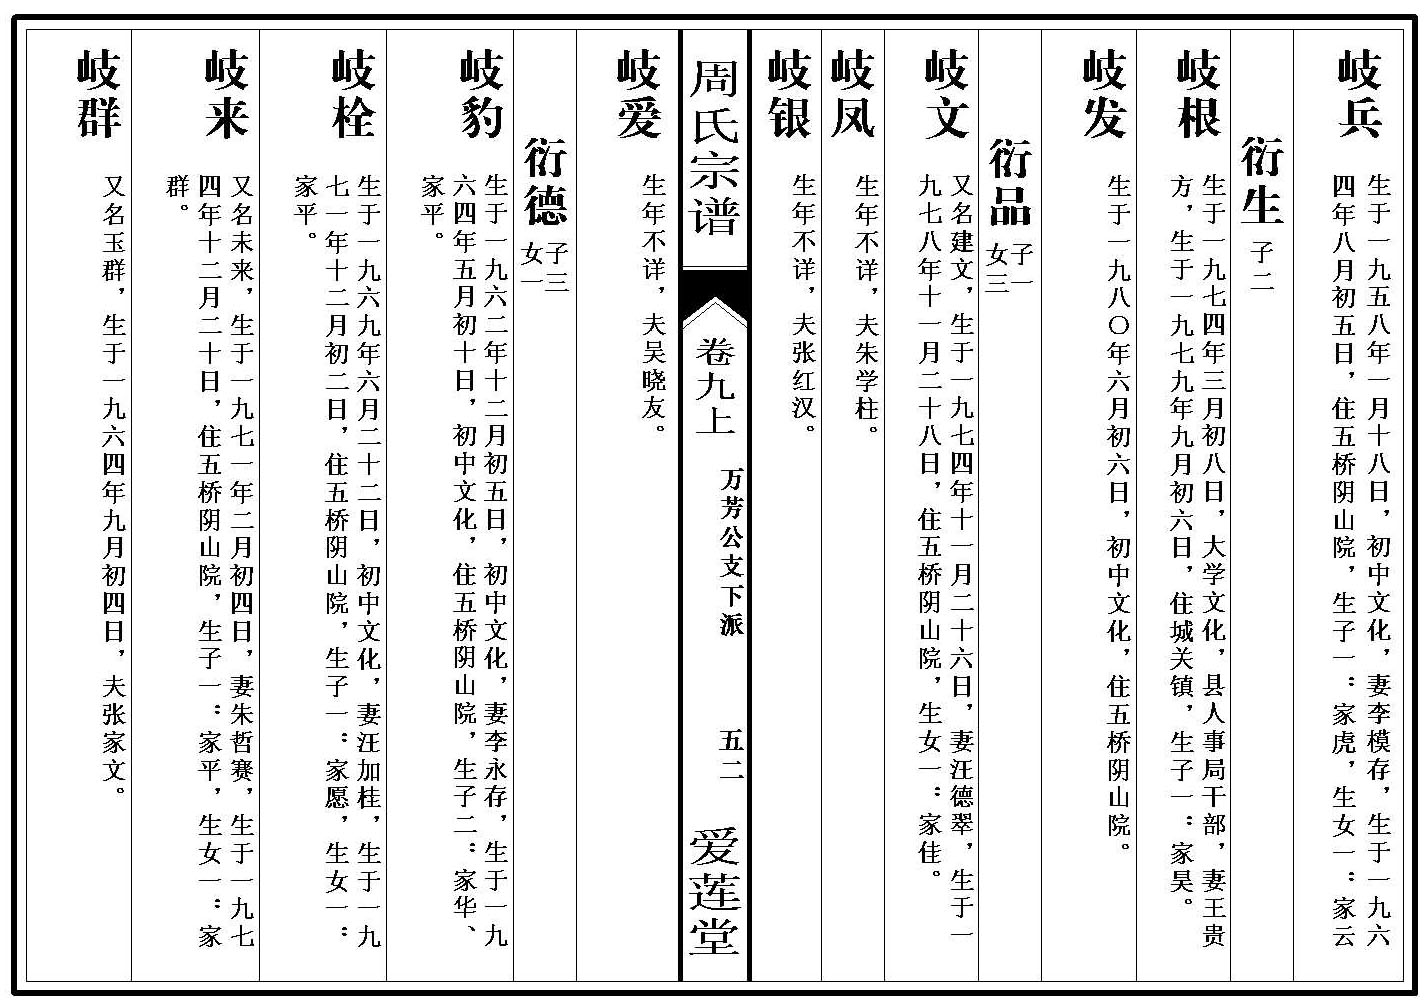 岐兵
生于一九五八年一月十八日，初中文化，妻李模存，生于一九六
四年八月初五日，住五桥阴山院，生子一：家虎，生女一：家云
衍生
子二
岐根
生于一九七四年三月初八日，大学文化，县人事局干部，妻王贵
方，生于一九七九年九月初六日，住城关镇，生子一：家昊。
岐发
生于一九八〇年六月初六日，初中文化，住五桥阴山院。
衍品
子一
女三
岐文
又名建文，生于一九七四年十一月二十六日，妻汪德翠，生于一
九七八年十一月二十八日，住五桥阴山院，生女一：家佳。
岐凤
生年不详，夫朱学柱。
岐银
生年不详，夫张红汉。
周氏宗谱
卷九上
万芳公支下派
五二
爱莲堂
岐爱
生年不详，夫吴晓友。
衍德
子三
女一
岐豹
生于一九六二年十二月初五日，初中文化，妻李永存，生于一九
六四年五月初十日，初中文化，住五桥阴山院，生子二：家华、
家平。
岐栓
生于一九六九年六月二十二日，初中文化，妻汪加桂，生于一九
七一年十二月初二日，住五桥阴山院，生子一：家愿，生女一：
家平。
岐来
又名未来，生于一九七一年二月初四日，妻朱哲赛，生于一九七
四年十二月二十日，住五桥阴山院，生子一：家平，生女一：家
群。
岐群
又名玉群，生于一九六四年九月初四日，夫张家文。